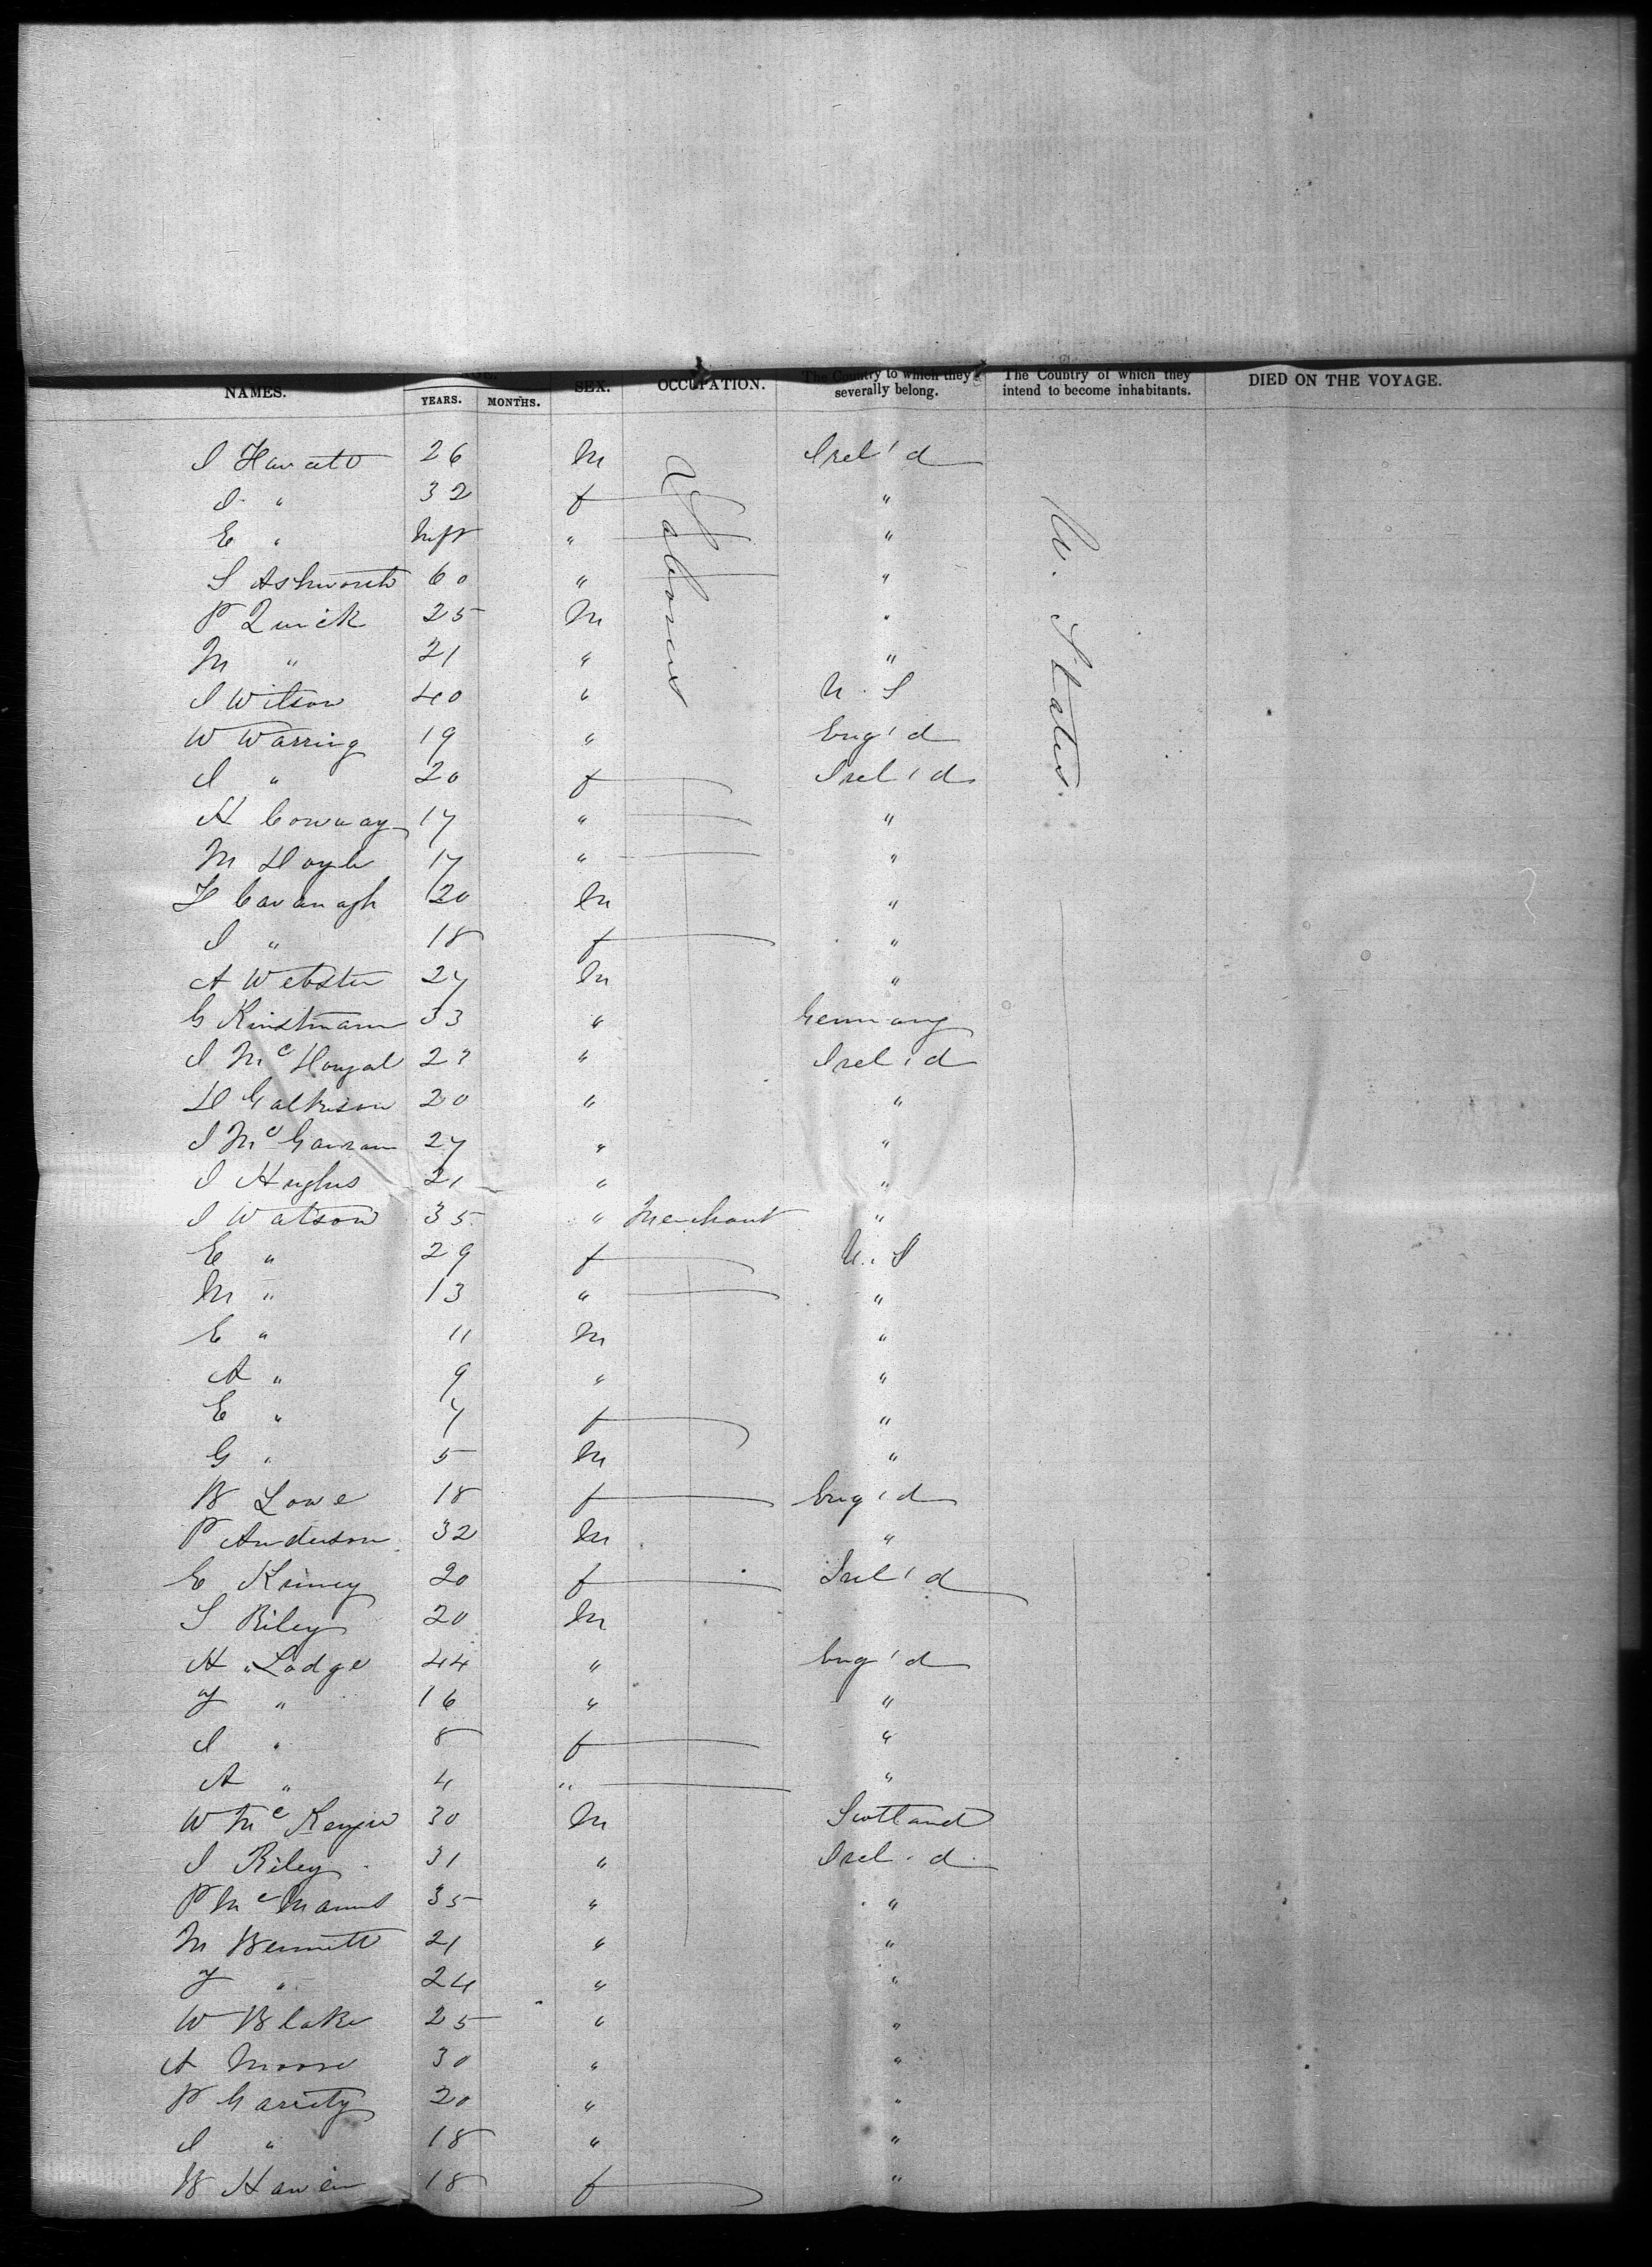 NAMES. YEARS. MONTHS. SEX. OCCUPATION. The Country to which they severally belong. The Country of which they intend to become inhabitants. DIED ON THE VOYAGE.
J 26 M Laborers Irel'd U. States
J " 32 f "
E " Inft " "
S Ashworth 60 " "
P Quick 25 M "
M " 21 " "
J Wilson 40 " U. S
W Warring 19 " Eng'd
J " 20 f Irel'd
H Conway 17 " "
M Doyle 17 " "
F Cavanagh 20 M "
J " 18 f "
A Webster 27 M "
G 33 " Germany
J McDougal " Irel'd
D 20 " "
J 27 " "
J Hughes 21 " "
J Watson 35 " Merchant "
E " 29 f U. S
M " 13 " "
E " 11 M "
A " 9 " "
E " 7 f "
G " 5 M "
B Lowe 18 f Eng'd
P Anderson 32 M "
E 20 f Irel'd
S Riley 20 M
H Lodge 44 " Eng'd
J " 16 " "
J " 8 f "
A " 4 " "
W McKenzie 30 M Scotland
J Riley 31 " Irel'd
P McManus 35 " "
M Bennett 21 " "
J " 24 " "
W Blake 25 " "
A Moore 30 " "
P Garrity 20 " "
J " 18 " "
B 18 f "